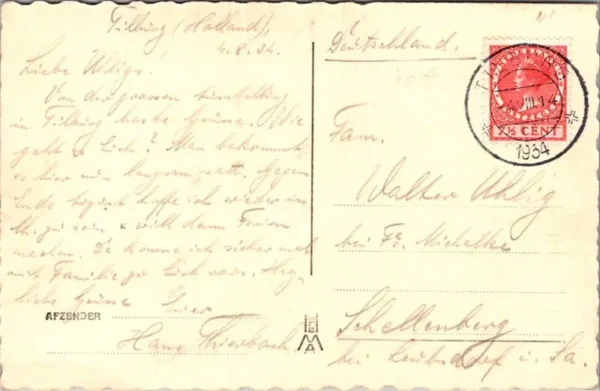 Tilburg (Holland),
4.8.34.
Liebe Uhligs!
Von der grossen Ausstellung
in Tilburg beste Grüsse. Wie
geht es Euch? Man bekommt
es hier nun langsam satt. Gegen
Ende August hoffe ich wieder in
zu sein & will dann Ferien
machen. Da komme ich sicher mal
mit Familie zu Euch raus.
liebe Grüsse Euer
Hans Thierbach
AFZENDER
HEMA
(Deutschland.
TILBURG
VIII.14
1934
7½ CENT
Fam.
Walter Uhlig
bei Fr. Michalke
Schellenberg
bei Leubsdorf i. Sa.